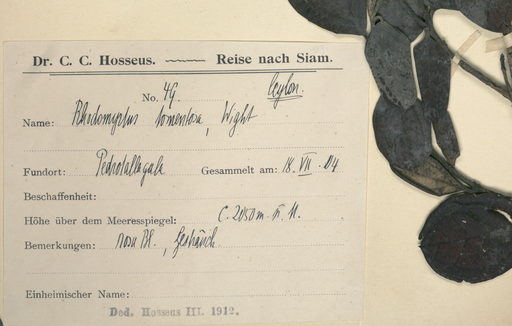 Dr. C. C. Hosseus. Reise nach Siam.
No. 49. Ceylon.
Name: Rhodomyrtus tomentosa, Wight
Fundort: Pedrotallagala Gesammelt am: 18. VII. 04
Beschaffenheit:
Höhe über dem Meeresspiegel: c. 2050 m ü. M.
Bemerkungen: rosa Bl., Gesträuch
Einheimischer Name:
Ded. Hosseus III. 1912.